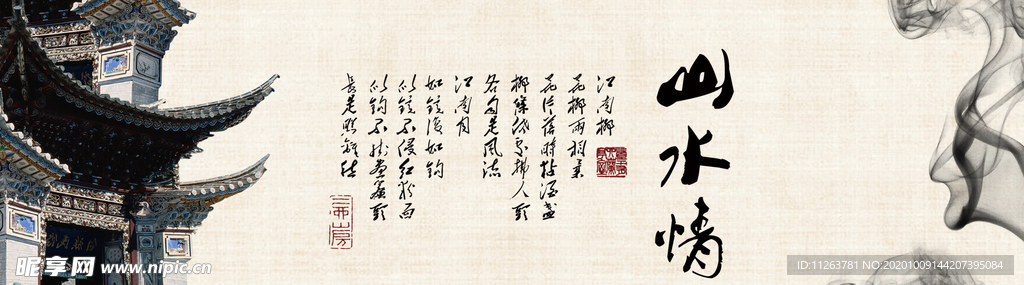 山水情
江南柳
花柳两相柔
花片落时粘酒盏
柳条低处拂人头
各自是风流
江南月
如镜复如钩
似镜不侵红粉面
似钩不挂画帘头
长是照离愁
昵享网 www.nipic.cn
ID:11263781 NO:20201009144207395084